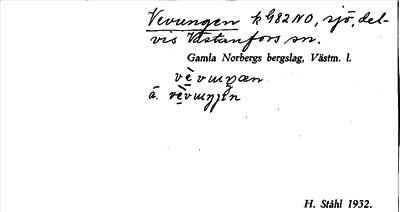 Vevungen k 982 NO, sjö, del-
vis Västanfors sn.
Gamla Norbergs bergslag, Västm. l.
å.
H. Ståhl 1932.